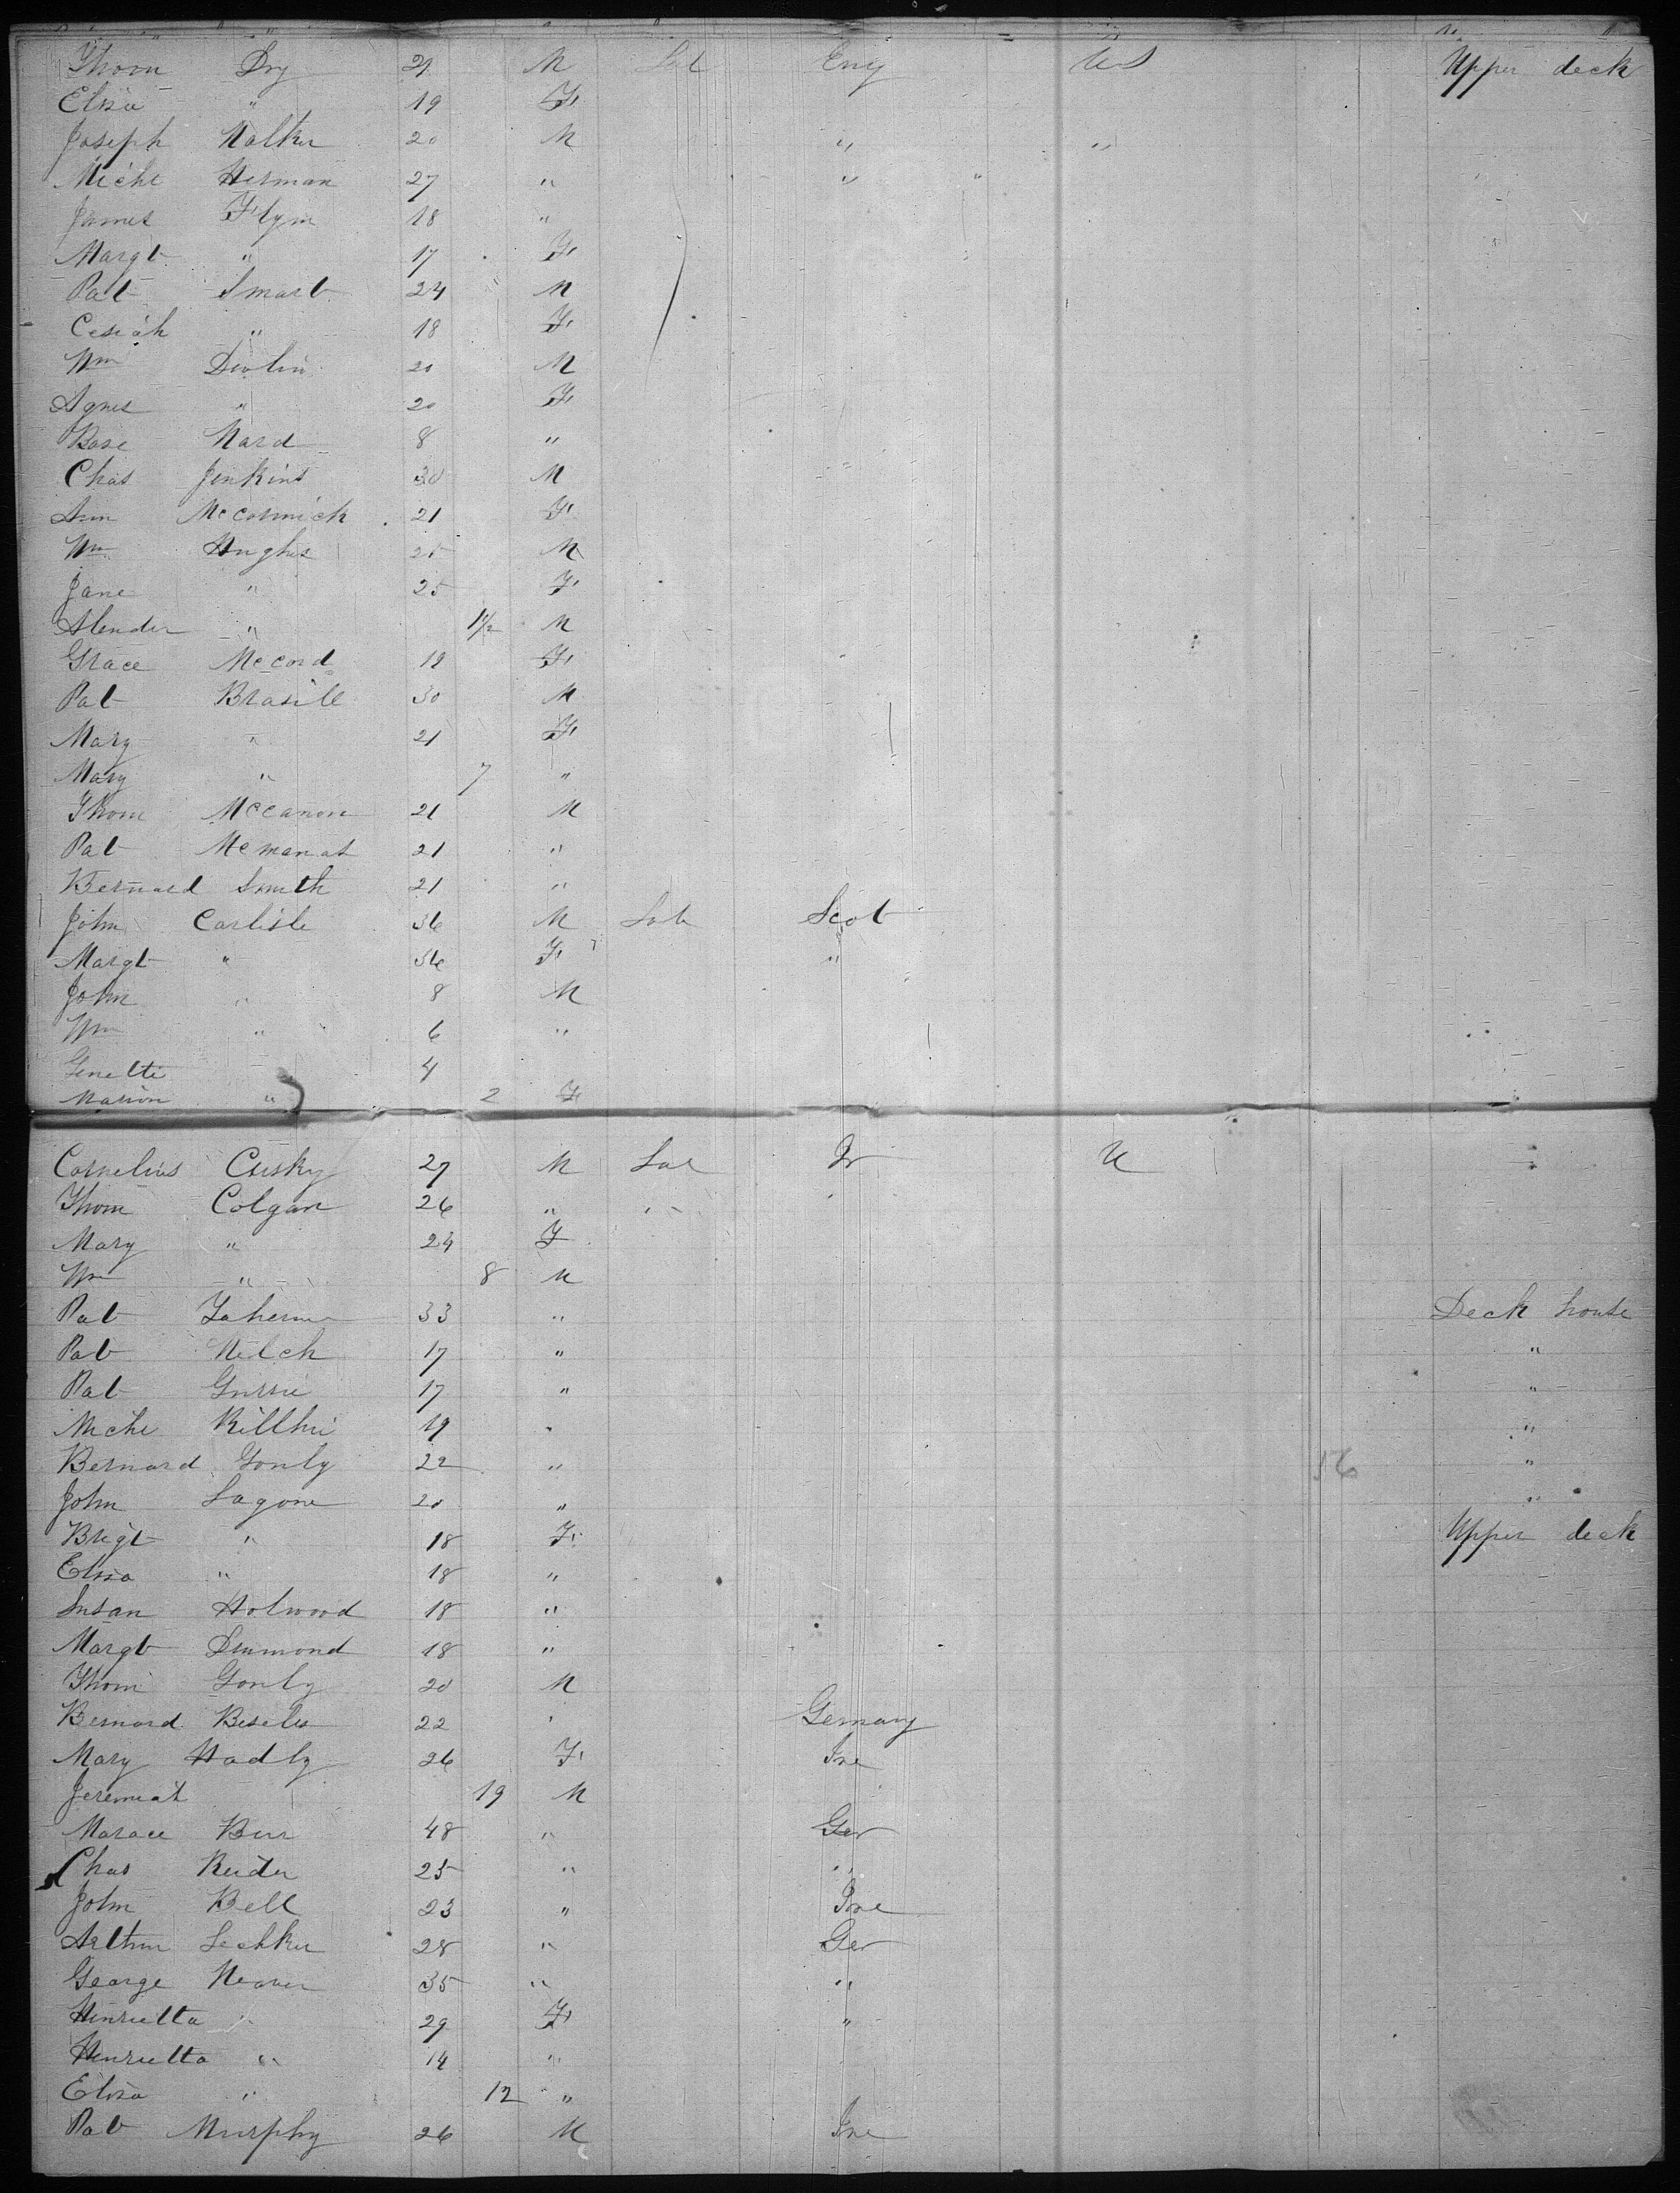 Thom Dry 21 M Lab Eng US Upper deck
Eliza " 19 F
Joseph Walker 20 M " "
Michl Herman 27 " "
James Flynn 18 "
Margt " 17 F
Pat Smart 24 M
Cesiah " 18 F
Wm Devlin 20 M
Agnes " 20 F
Rose Ward 8 "
Chas Jenkins 30 M
Ann McCormick 21 F
Wm Hughes 25 M
Jane " 25 F
" M
Grace McCord 19 F
Pat Brasill 30 M
Mary " 21 F
Mary " 7 "
Thom McCanon 21 M
Pat McManas 21 "
Bernard Smith 21 "
John Carlisle 36 M Lab Scot
Margt " 36 F "
John " 8 M
Wm " 6 "
Genetti 4
Marion " 2 F
Cornelius Cusky 27 M Lab Ir U "
Thom Colgan 26 " "
Mary " 24 F
Wm " 8 M
Pat 33 " Deck house
Pat Welch 17 " "
Pat 17 " "
Miche 19 " "
Bernard Gonly 22 " "
John Lagone 20 " "
Brigt " 18 F Upper deck
Eliza " 18 "
Susan Holwood 18 "
Margt Drumond 18 "
Thom Gonly 20 M
Bernard Beseles 22 " Germany
Mary Hadly 26 F Ire
Jeremiah 19 M
48 " Ger
Chas Reider 25 " "
John Bell 23 " Ire
Arthur 28 " Ger
George Weaver 35 " "
Henrietta " 29 F "
Henrietta " 14 "
Eliza " 12 "
Pat Murphy 26 M Ire